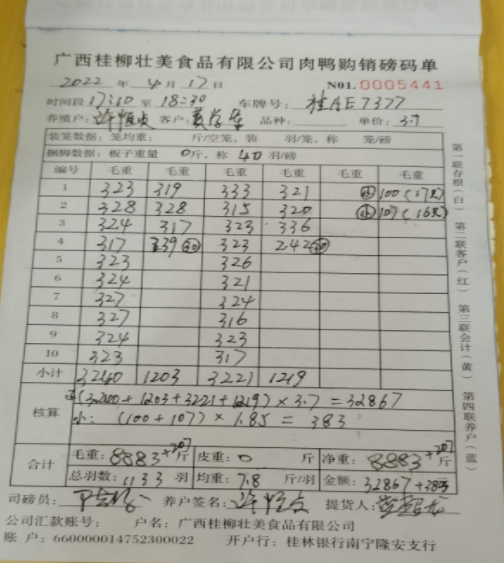 广西桂柳壮美食品有限公司肉鸭购销磅码单
2022 年 4 月 17 日 N01.0005441
时间段 17:10 至 18:30 车牌号: 桂AE7377
养殖户: 客户: 品种: 单价: 3.7
装笼数据: 笼均重: 斤/空笼, 装 羽/笼, 称 笼/磅
捆脚数据: 板子重量 0斤, 称 40 羽/磅
编号 毛重 毛重 毛重 毛重 毛重 毛重
1 323 319 333 321 小 100 (17只)
2 328 328 315 320 小 107 (16只)
3 324 317 323 336
4 317 339 323 242
5 323 326
6 324 321
7 327 324
8 327 316
9 324 323
10 323 317
小计 3240 1203 3221 1219
核算 (3240+1203+3221+1219)×3.7=32867
小: (100+107)×1.85=383
合计 毛重: 8883+207 斤 皮重: 0 斤 净重: 8883+207 斤
总羽数: 1133 羽 均重: 7.8 斤/羽 金额: 32867+383
司磅员: 养户签名: 提货人:
公司汇款账号: 户名: 广西桂柳壮美食品有限公司
账 户: 660000014752300022 开户行: 桂林银行南宁隆安支行
第一联存根(白) 第二联客户(红) 第三联会计(黄) 第四联养户(蓝)